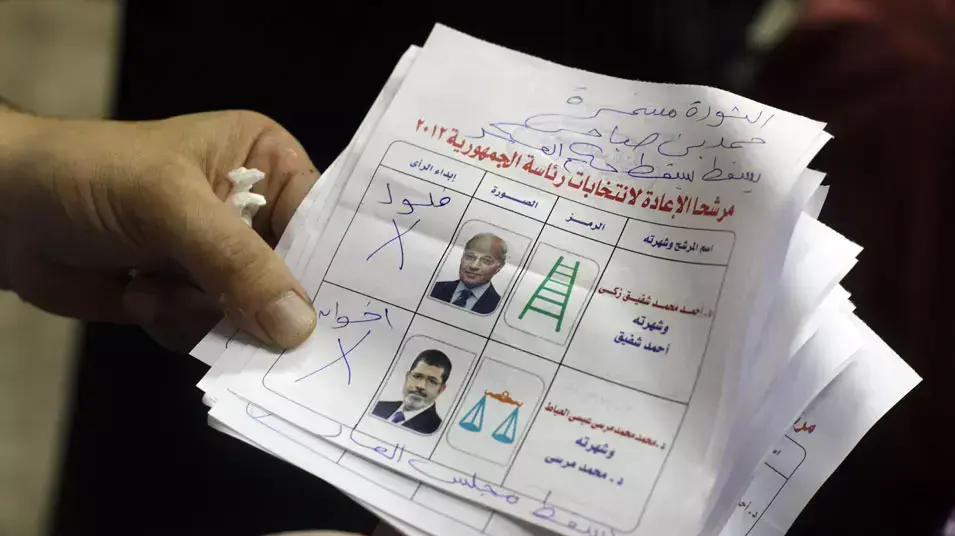 الثورة مستمرة
حمدين صباحي
يسقط يسقط حكم العسكر
مرشحا الإعادة لانتخابات رئاسة الجمهورية ٢٠١٢
اسم المرشح وشهرته
الرمز
الصورة
إبداء الرأى
د.أحمد محمد شفيق زكى
وشهرته
أحمد شفيق
فلول
X
د.محمد محمد مرسى عيسى العياط
وشهرته
د. محمد مرسى
اخوان
X
يسقط مجلس العار